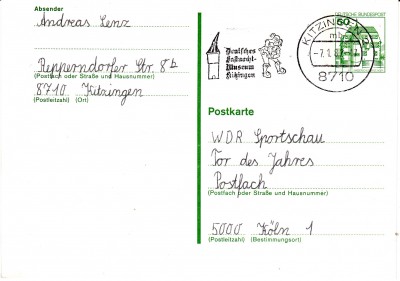 Absender
Andreas Lenz
Repperndorfer Str. 8b
(Postfach oder Straße und Hausnummer)
8710 Kitzingen
(Postleitzahl) (Ort)
Deutsches
Fastnacht-
Museum
Kitzingen
KITZINGEN
8710
DEUTSCHE BUNDESPOST
50
Postkarte
WDR Sportschau
Tor des Jahres
Postfach
(Postfach oder Straße und Hausnummer)
5000 Köln 1
(Postleitzahl) (Bestimmungsort)